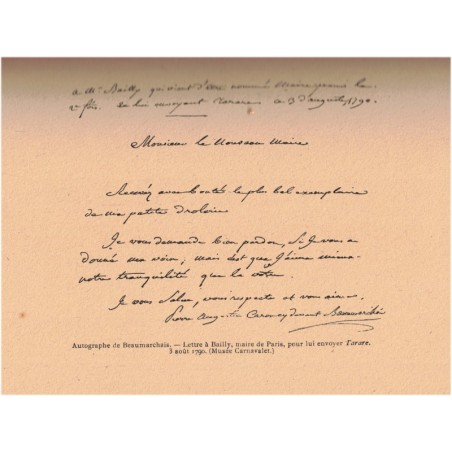 a Mr. Bailly qui vient d'être nommé maire pour la
2e fois. en lui envoyant Tarare ce 3 d'augute, 1790.
Monsieur le Nouveau Maire
Recevés avec bonté le plus bel exemplaire
de ma petite drolerie
Je vous demande bien pardon, Si Je vous a
donné ma voix; mais c'est que J'aime mieux
votre tranquilité que la vôtre.
Je vous Salue, vous respecte et vous aime.
Pierre Augustin Caron de Beaumarchais
Autographe de Beaumarchais. — Lettre à Bailly, maire de Paris, pour lui envoyer Tarare.
3 août 1790. (Musée Carnavalet.)